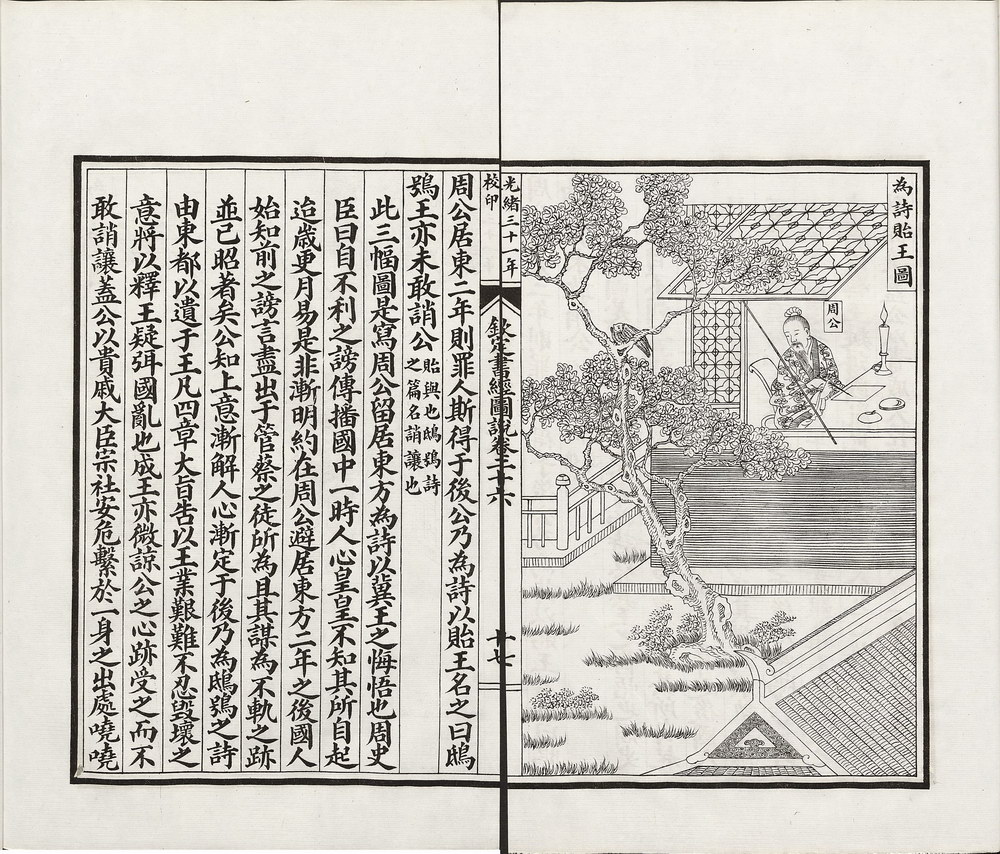 為詩貽王圖
周公
光緒三十一年
校印
欽定書經圖說卷二十六
十七
周公居東二年則罪人斯得于後公乃為詩以貽王名之曰鴟
鴞王亦未敢誚公貽與也鴟鴞詩
之篇名誚讓也
此三幅圖是寫周公留居東方為詩以冀王之悔悟也周史
臣曰自不利之謗傳播國中一時人心皇皇不知其所自起
迨歲更月易是非漸明約在周公避居東方二年之後國人
始知前之謗言盡出于管蔡之徒所為且其謀為不軌之跡
並已昭著矣公知上意漸解人心漸定于後乃為鴟鴞之詩
由東都以遺于王凡四章大旨告以王業艱難不忍毀壞之
意將以釋王疑弭國亂也成王亦微諒公之心跡受之而不
敢誚讓蓋公以貴戚大臣宗社安危繫於一身之出處嘵嘵